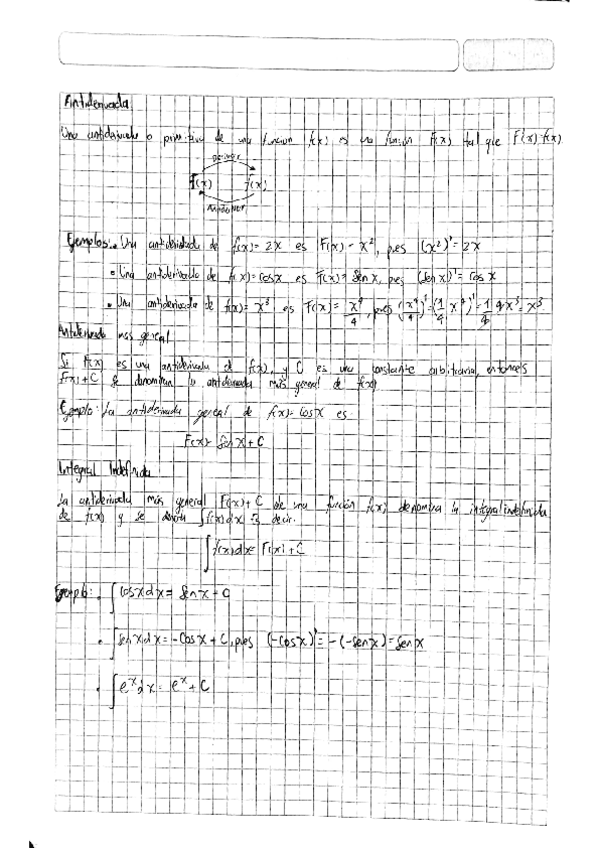 Antiderivada
Una antiderivada o primitiva de una función f(x) es una función F(x) tal que F'(x)=f(x)
Derivar
F(x) f(x)
Ejemplos: • Una antiderivada de f(x)= 2x es F(x) = x², pues (x²)'= 2x
• Una antiderivada de f(x)= Cosx es F(x)= Sen x, pues (Sen x)'= Cos x
• Una antiderivada de f(x)= x³ es F(x)= x⁴/4, pues (x⁴/4)'=(1/4 x⁴)'=1/4 4x³= x³
Antiderivada más general
Si F(x) es una antiderivada d f(x), y C es una constante arbitraria, entonces
F(x)+C se denomina la antiderivada más general de f(x)
Ejemplo: La antiderivada general de f(x)= Cosx es:
F(x)= Sen x + C
Integral Indefinida
La antiderivada más general F(x)+C de una función f(x) denomina la integral indefinida
de f(x) y se denota ∫f(x)dx Es decir.
∫f(x)dx= F(x)+C
Ejemplo: • ∫Cosxdx= Sen x + C
• ∫Senxdx= -Cosx + C, pues (-Cosx)'= -(-senx)= Sen x
• ∫eˣdx= eˣ + C